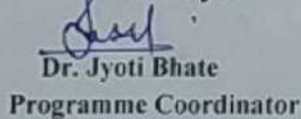 Dr. Jyoti Bhate
Programme Coordinator